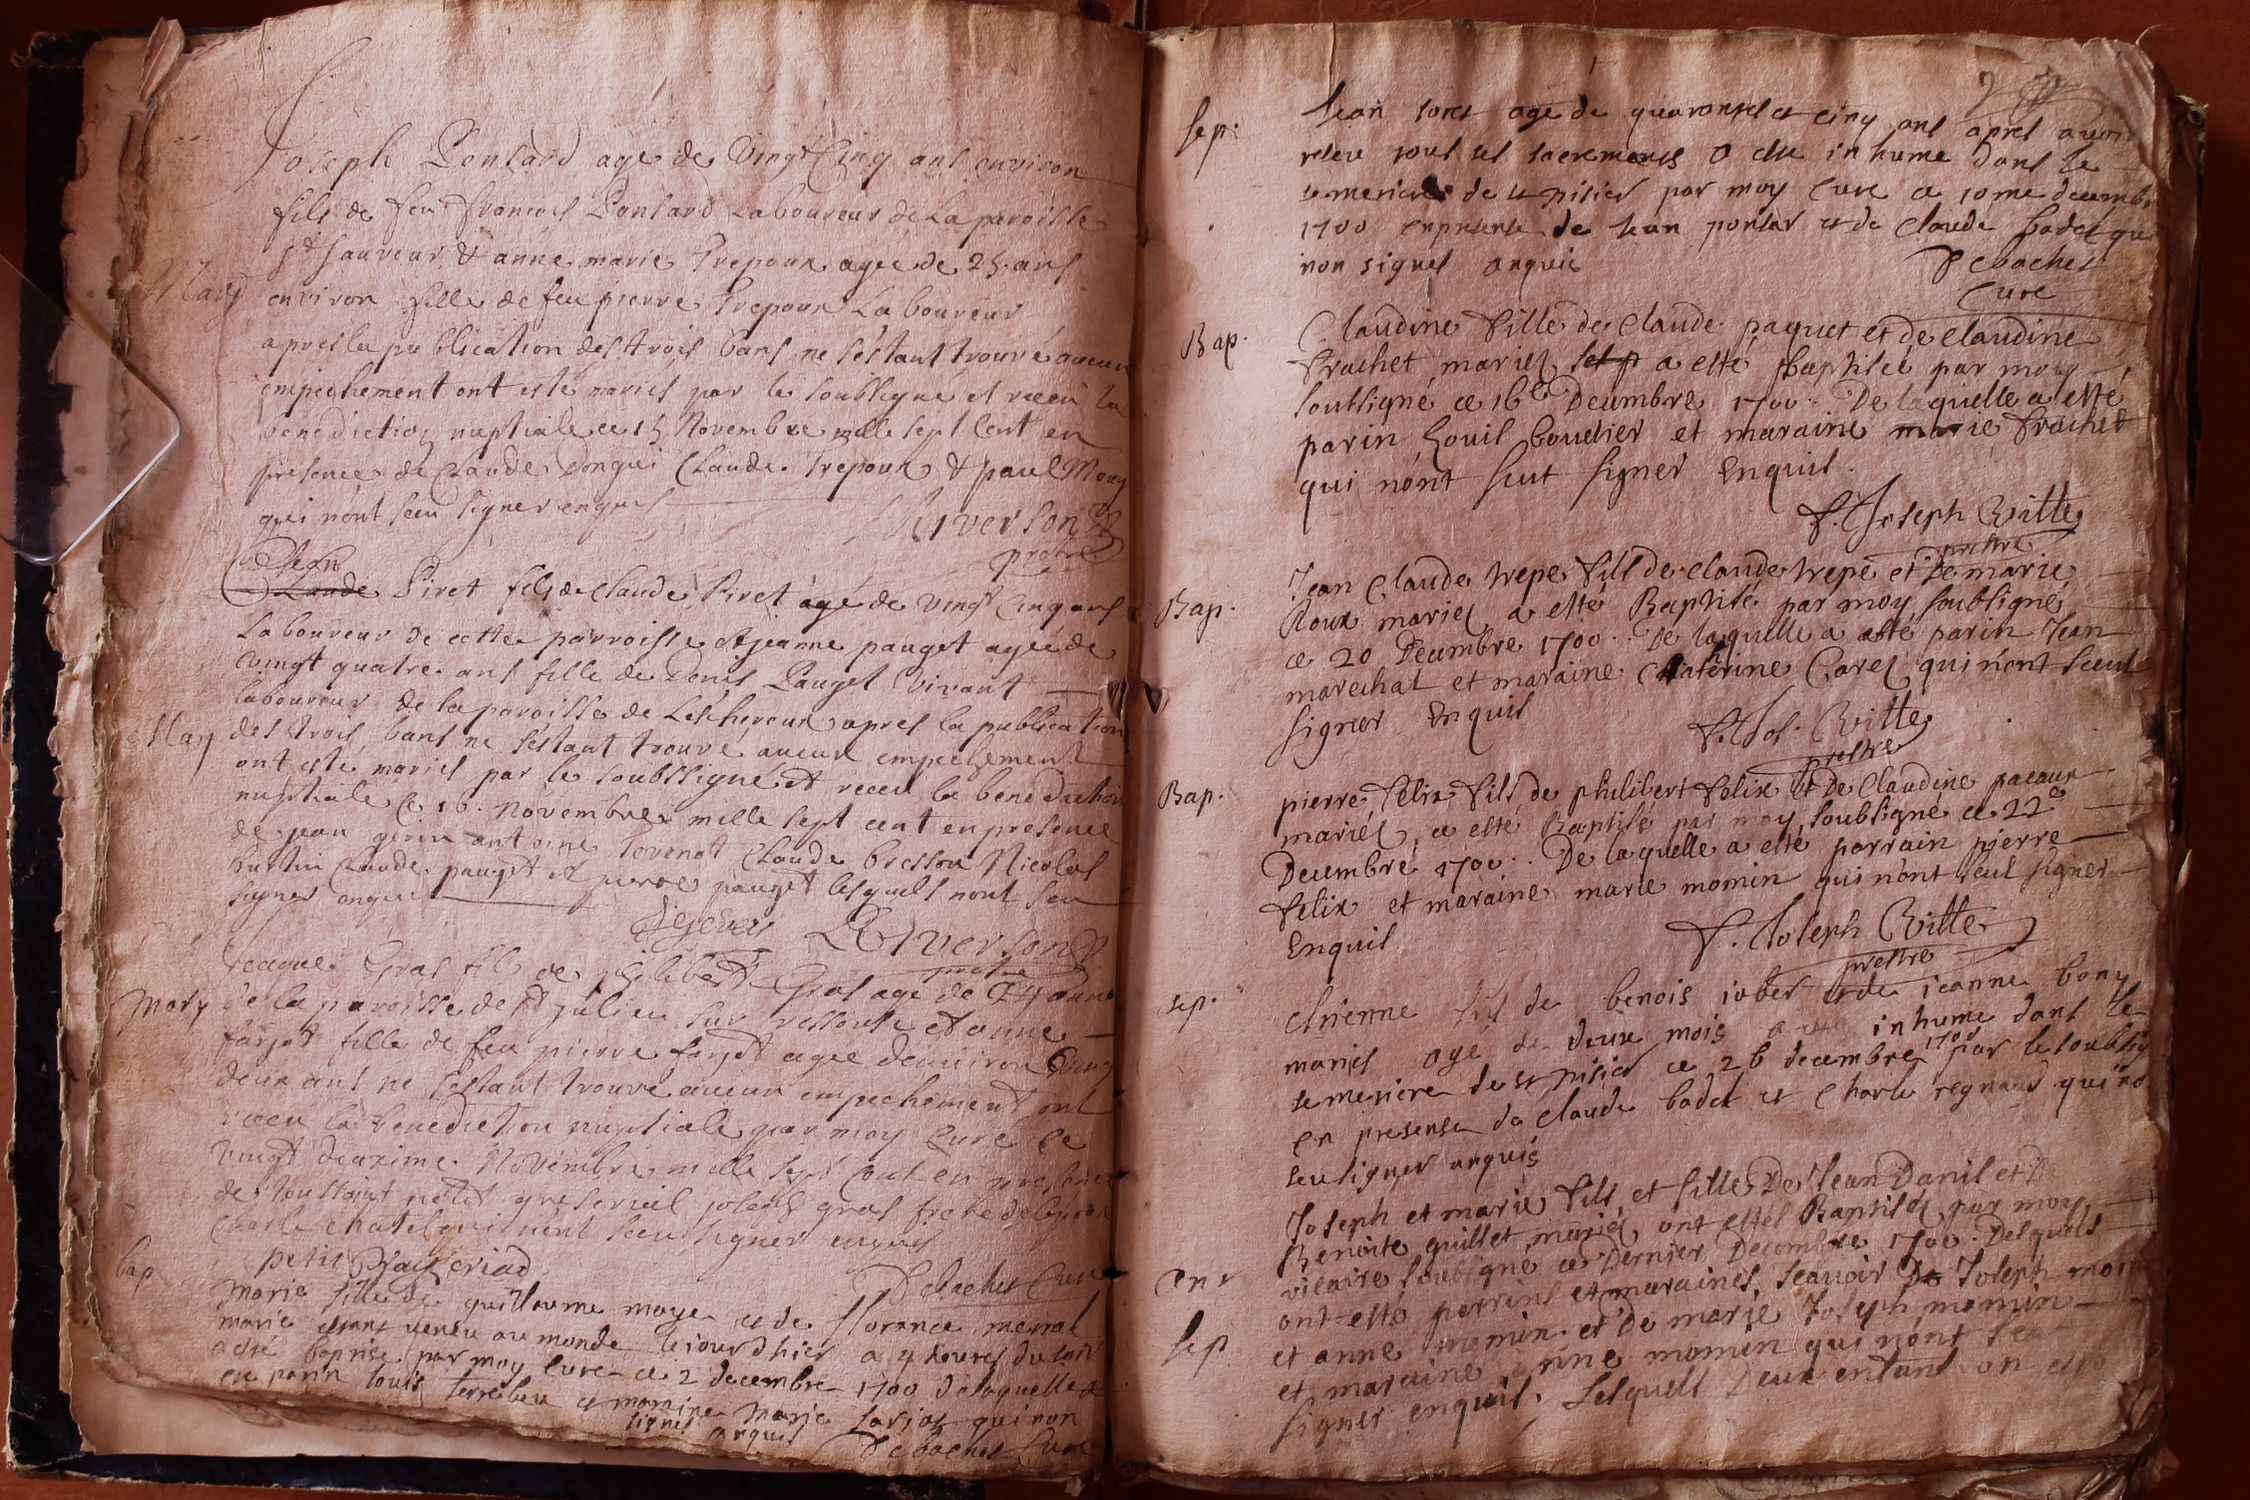 Joseph Ponsard agé de Vingt Cinq ans environ
fils de feu francois Ponsard Laboureur de la paroisse
St Sauveur & anne marie Trepoux agee de 25 ans
Mary
environ fille de feu pierre Trepoux Laboureur
apres la publication des trois bans ne s'estant trouvé aucun
empechement ont esté mariés par le soubsigné et receu la
benediction nuptiale ce 15 Novembre mille sept Cent en
presence de Claude Donguy Claude Trepoux & paul Mong
qui nont sceu signer enquis
Riverson
pretre
Jean
Claude Piret fils de Claude Piret agé de vingt Cinq ans
Laboureur de cette parroisse et jeanne pauget agée de
vingt quatre ans fille de Denis Pauget vivant
laboureur de la paroisse de Lescheroux apres la publication
Mary
des trois bans ne s'estant trouvé aucun empechement
ont esté mariés par le soubsigné et receu la benediction
nuptiale Ce 16 novembre mille sept cent en presence
de jean gerin antoine Tevenot Claude bresson Nicolas
burtin Claude pauget et pierre pauget lesquels nont sceu
signer enquis
Riverson
pretre
Jeaque Gras fils de philibert Gras agé de 24 anne
Mary
de la paroisse de St Julien sur ressouse et anne
farjet fille de feu pierre farjet agee denviron vingt
deux ans ne s'estant trouvé aucun empechement ont
receu la benediction nuptiale par moy Curé Ce
vingt deuxime Novembre mille sept cent en presence
de Toussaint petit joseph gras frere de lepoux
Charle Chatel qui nont sceu signer enquis
petit
Debochet Curé
bap
Marie fille de guillaume moye et de florance meral
mariés estant venue au monde le jourdhier a 9 houres du soir
a esté baptisé par moy Cure ce 2 decembre 1700 de laquelle a
eu parin louis terrebou et maraine Marie Farjot qui non
signés enquis
Debochet Curé
Sep:
Jean soret agé de quarantes et cinq ans apres avoir
releu tous ses sacrements a este inhume dans le
semetiere de st nisier par moy Cure ce 10me decembre
1700 en presense de Jean ponsar et de Claude badet qui
non signés enquis
Debochet
Cure
Bap.
Claudine fille de Claude paquet et de Claudine
Frachet mariez a esté Baptisée par moy
soubsigné ce 16e Decembre 1700. De laquelle a esté
parin Louis boudier et maraine marie Frachet
qui nont sceut signer Enquis.
F. Joseph Vitte
prestre
Bap.
Jean Claude trepe fils de claude trepe et De marie
Roux mariez a esté Baptisé par moy soubsigné
ce 20 Decembre 1700. De laquelle a esté parin Jean
marechal et maraine Chaterine Carez qui n'ont sceut
signer Enquis
F. Jos. Vitte
prestre
Bap.
pierre Felix fils de philibert Felix et De Claudine pacaux
mariéz a esté Baptisé par moy soubsigné ce 22e
Decembre 1700. De laquelle a esté parrain pierre
Felix et maraine marie momin qui n'ont sceut signer
Enquis
F. Joseph Vitte
prestre
Sep.
Etienne fils de benois jober et de jeanne bony
mariés agé de deux mois a esté inhume dans le
semetiere de st nisier ce 26 decembre 1700 par le soubsig
en presense de claude badet et Charle regnaud qui no
seu signer enquis
Joseph et marie fils et fille De Jean Danis et De
Benoite guillet mariéz ont estés Baptiséz par moy
vicaire soubsigné ce Dernier Decembre 1700. Desquels
ont esté parrins et maraines sçavoir De Joseph mo
et anne momin. et De marie Joseph momin
Sep
et maraine anne momin qui n'ont sceu
signer enquis. Lesquels Deux enfans on esté